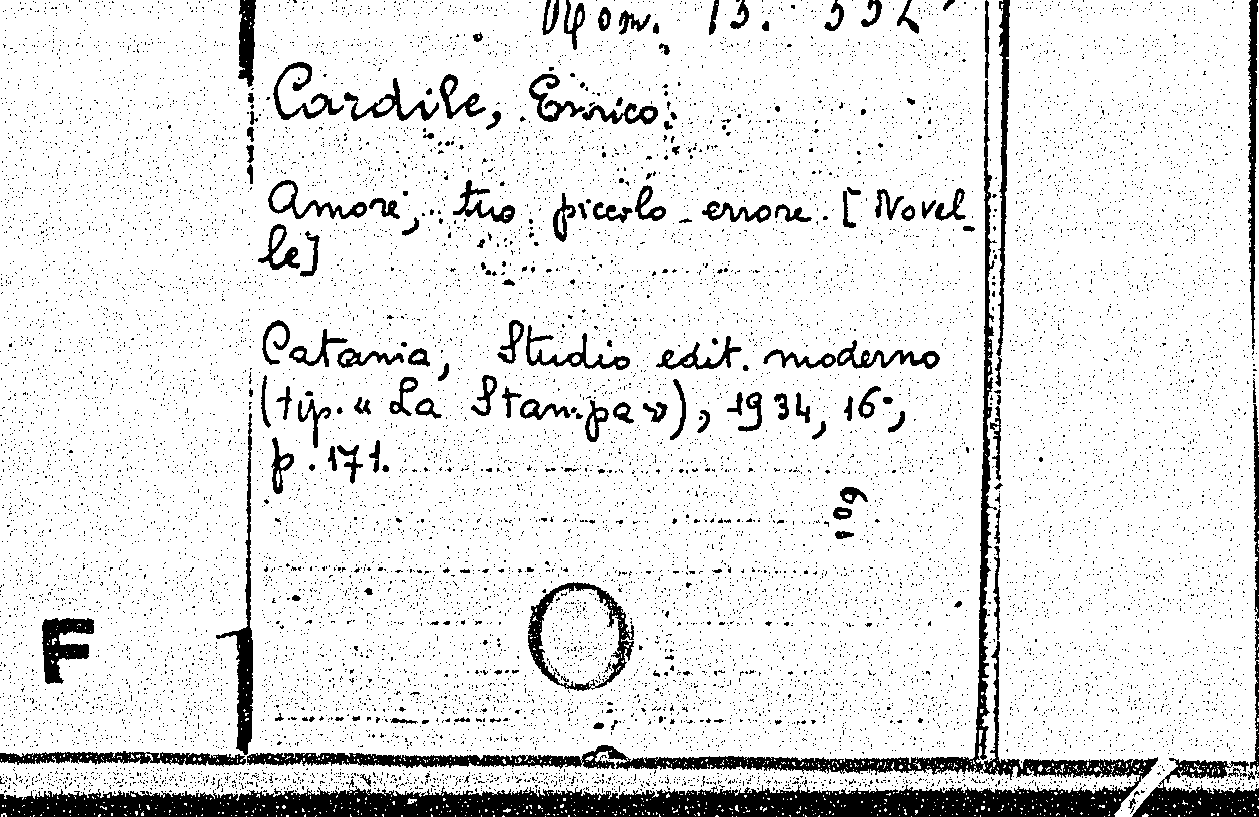 Rom. 13. 552
Cardile, Enrico.
Amore, tuo piccolo errore. [Novel-
le]
Catania, Studio edit. moderno
(tip. « La Stampa »), 1934, 16°,
p. 171.
109
F